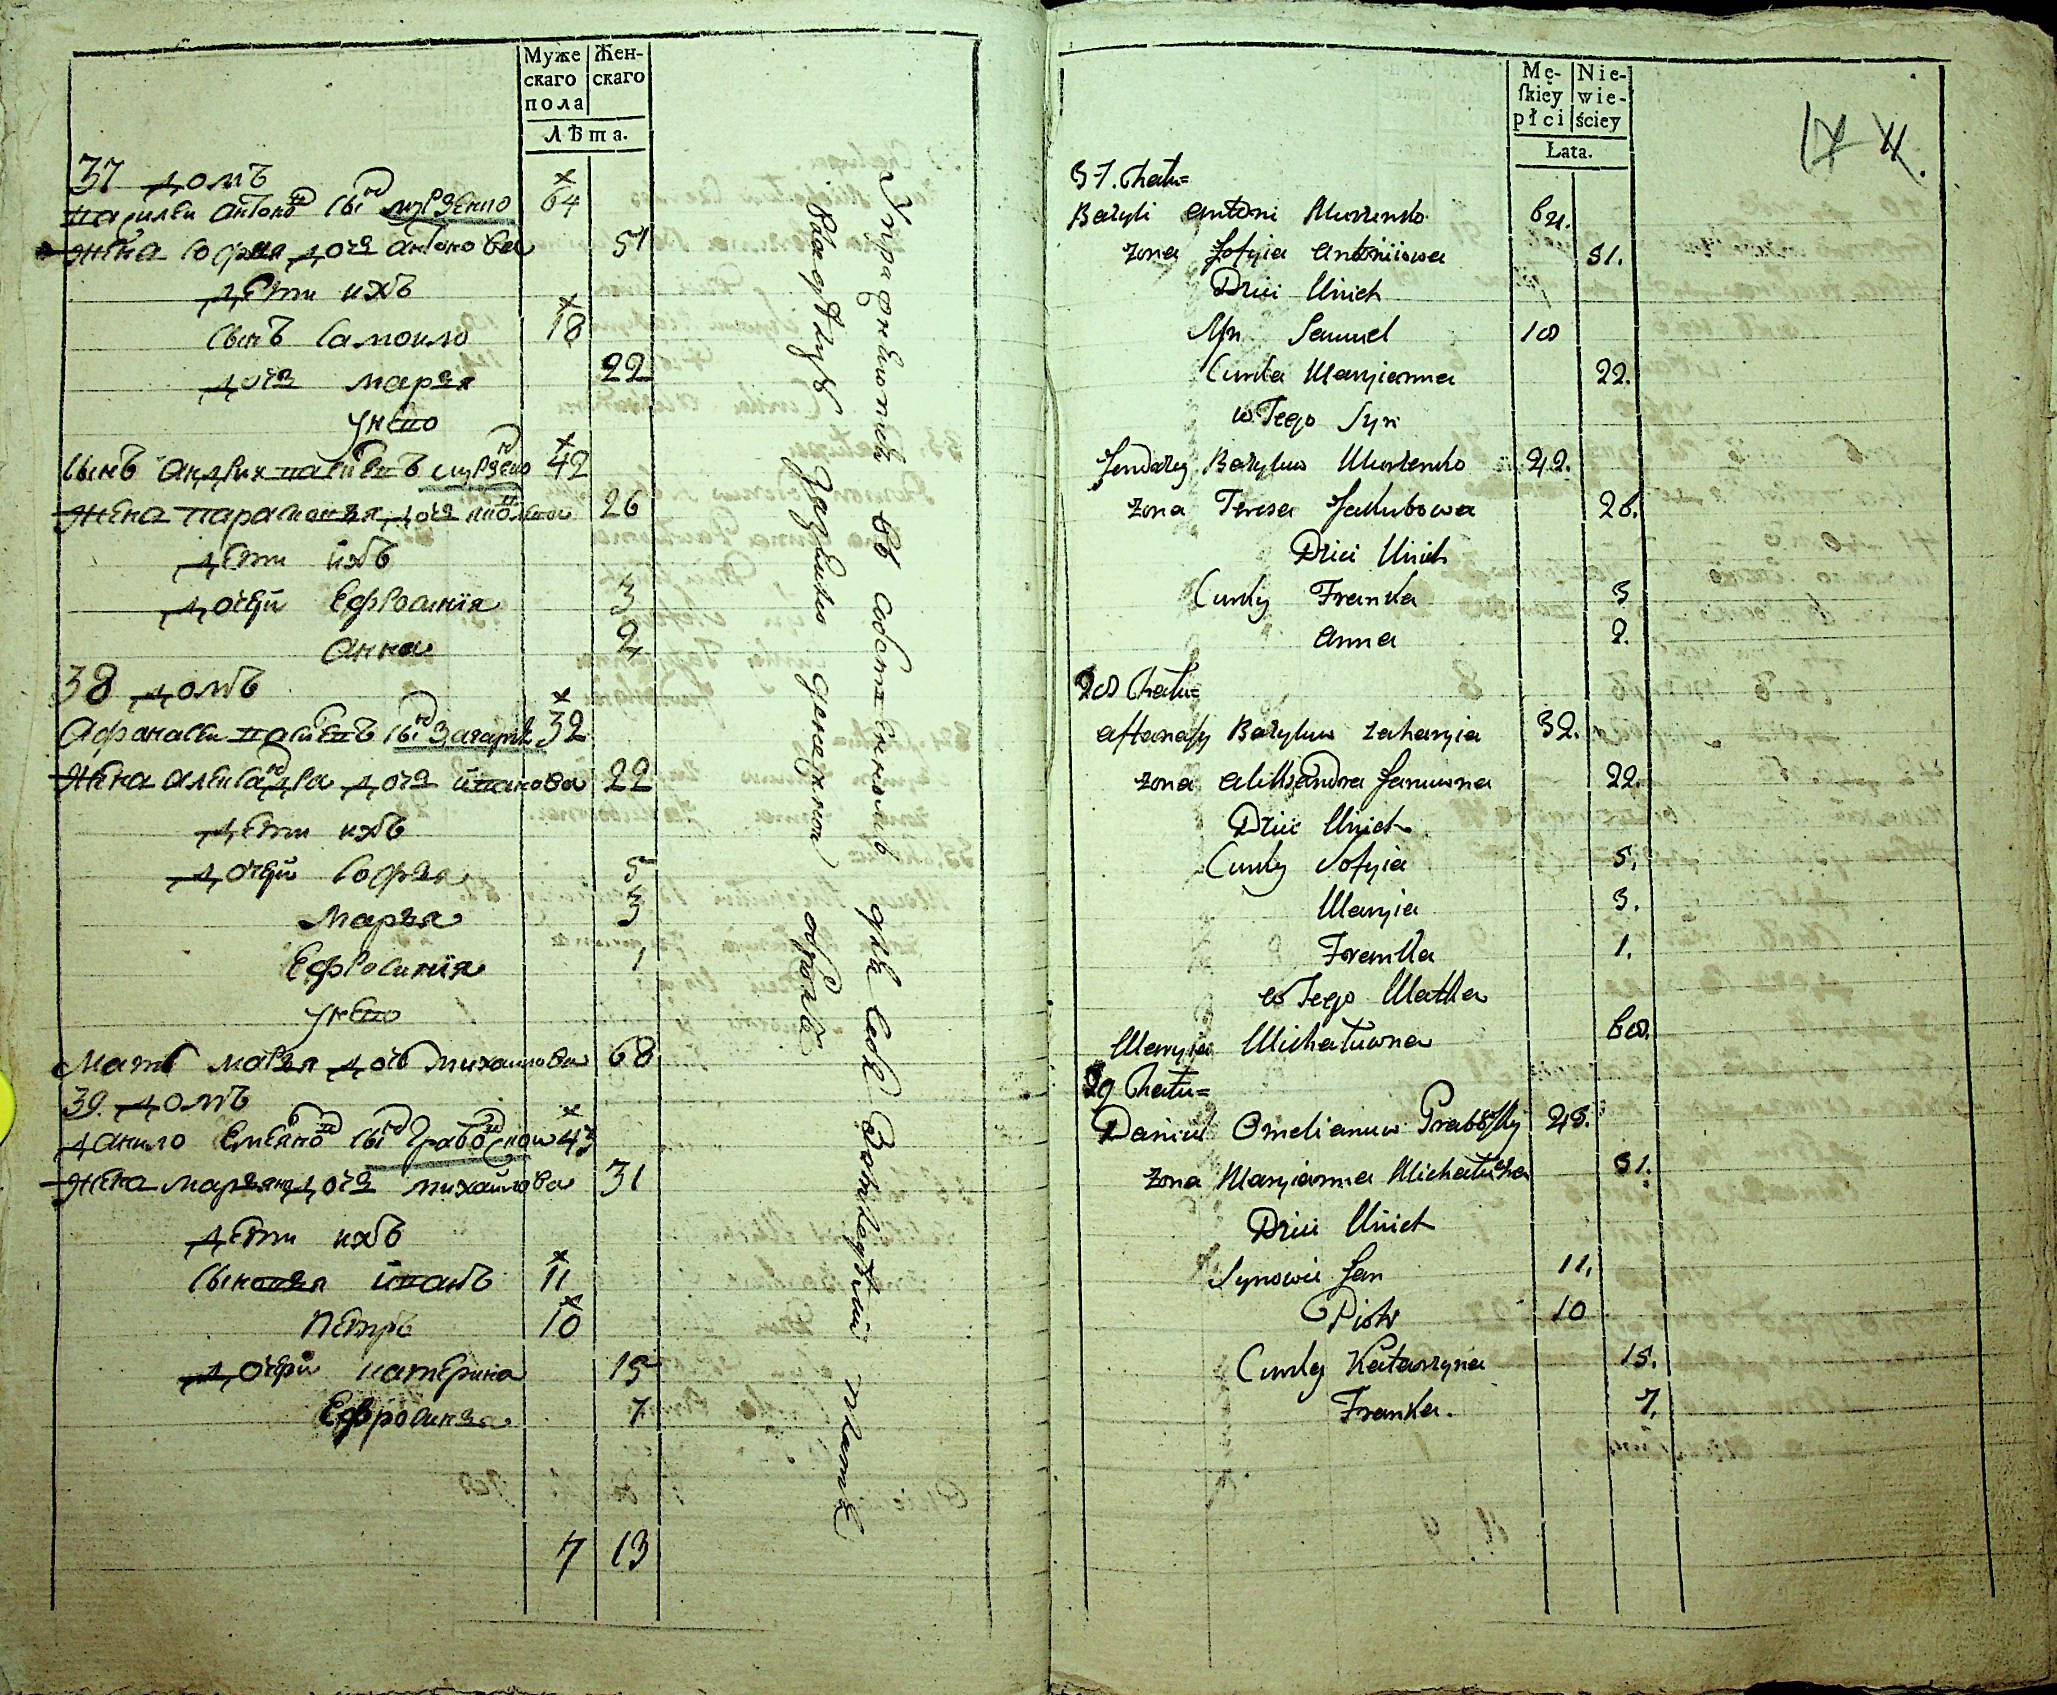 Муже Жен-
скаго скаго
пола
Лѣта.
37 домъ
василеи антоно сы мурзенко 64
жена софья доч антонова 51
дети ихъ
сынъ самоило 18
доч марья 22
унево
сынъ андрих васильевъ мурзенко 42
жена парасковья доч 26
дети ихъ
дочери Ефросинїя 3
анна 2
38 домъ
афанасеи васильевъ сы Захария 32
жена александра доч иванова 22
дети ихъ
дочери софья 5
Марья 3
Ефросинїя 1
унево
Мать марья дочь михаилова 68
39. домъ
данило Емеляно сы грабовской 43
жена марьяна доч михаилова 31
дети ихъ
сыновья иванъ 11
петръ 10
дочери катерина 15
Ефросинья 7
7 13
Упражняютсѧ въ собственномъ для себя
владѣлцу денежной оброкъ
Mę- Nie-
ſkiey wie-
płci ściey
Lata.
37. Chatu=
Bazyli Antoni Murzenko 64.
żona Zofyia Antoniiowa 51.
Dzieci Unich
Syn Samuel 18
Curka Maryianna 22.
w Tego Syn
Jendrzy Bazyluw Murzenko 42.
żona Teresa Jakubowa 26.
Dzieci Unich
Curky Franka 3
Anna 2.
38 Chatu=
Aftanasy Bazyluw Zaharyia 32.
żona Alixandra Januwna 22.
Dzieci Unich
Curky Zofyia 5.
Maryia 3.
Franka 1.
w Tego Matka
Maryia Michałuwna 68.
39 Chatu=
Daniel Omelianuw Grabowsky 43.
żona Maryianna Michałuwna 31.
Dzieci Unich
Synowie Jan 11.
Piotr 10
Curky Katarzyna 15.
Franka. 7.